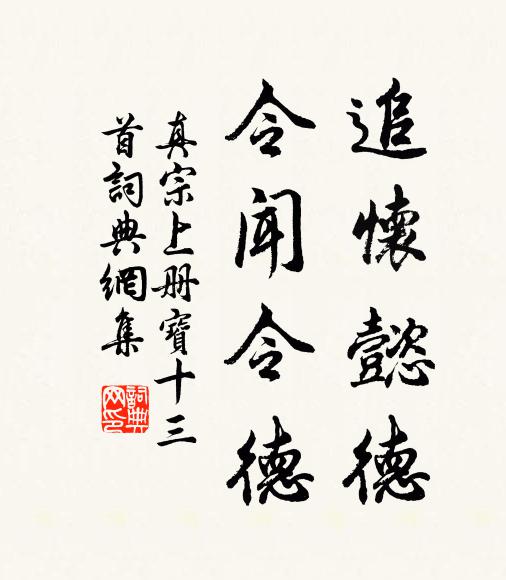 追懷懿德
令聞令德
真宗上册寶十三
首詞典網集
詞典
网印